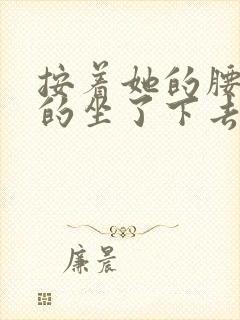 按着她的腰
的坐了下去
廉晨